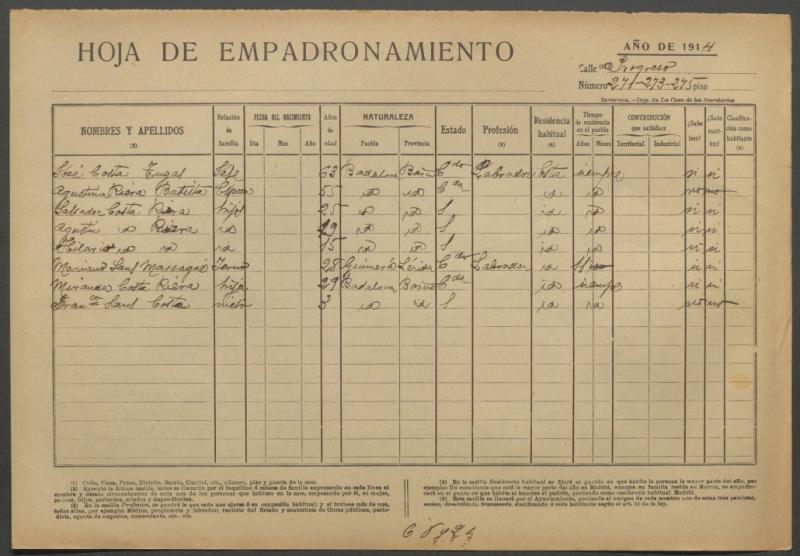 HOJA DE EMPADRONAMIENTO
AÑO DE 1914
Calle (1) Progreso
Número 271-273-275 piso
Barcelona.—Imp. de La Casa de los Secretarios
NOMBRES Y APELLIDOS (2) Relación de familia FECHA DEL NACIMIENTO Día Mes Año Años de edad NATURALEZA Pueblo Provincia Estado Profesión (3) Residencia habitual (4) Tiempo de residencia en el pueblo Años Meses CONTRIBUCIÓN que satisface Territorial Industrial ¿Sabe leer? ¿Sabe escribir? Clasificación como habitante (5)
José Costa Tugas Jefe 63 Badalona Barna Cdo Labrador Esta siempre si si
Agustina Riera Batista Esposa 55 id id Cda id id no no
Salvador Costa Riera hijo 25 id id S id id si si
Agustin id Riera id 19 id id S id id si si
Hilario id id id 15 id id S id id si si
Mariano Sans Massagué Yerno 28 Guimerá Lérida Cdo Labrador id 11 si si
Miranda Costa Riera hija 29 Badalona Barna Cda id siempre si si
Francca Sans Costa nieta 3 id id S id id no no
(1) Calle, Plaza, Paseo, Distrito, Barrio, Cuartel, etc., número, piso y puerta de la casa.
(2) Excepto la última casilla, todas se llenarán por el inquilino ó cabeza de familia expresando en cada línea el
nombre y demás circunstancias de cada una de las personas que habitan en la casa, empezando por él, su mujer,
padres, hijos, parientes, criados y dependientes.
(3) En la casilla Profesión, se pondrá la que cada uno ejerza ó su ocupación habitual; y si tuviera más de una,
todas ellas, por ejemplo: Médico, propietario y labrador; rentista del Estado y contratista de Obras públicas, perio-
dista, agente de negocios, comerciante, etc., etc.
(4) En la casilla Residencia habitual se fijará el pueblo en que habite la persona la mayor parte del año, por
ejemplo: Un estudiante que esté la mayor parte del año en Madrid, aunque su familia resida en Murcia, se empadro-
nará en el punto en que habite al hacerse el padrón, poniendo como residencia habitual Madrid.
(5) Esta casilla se llenará por el Ayuntamiento, poniendo al margen de cada nombre una de estas tres palabras,
vecino, domiciliado, transeunte, clasificando á cada habitante según el art. 11 de la ley.